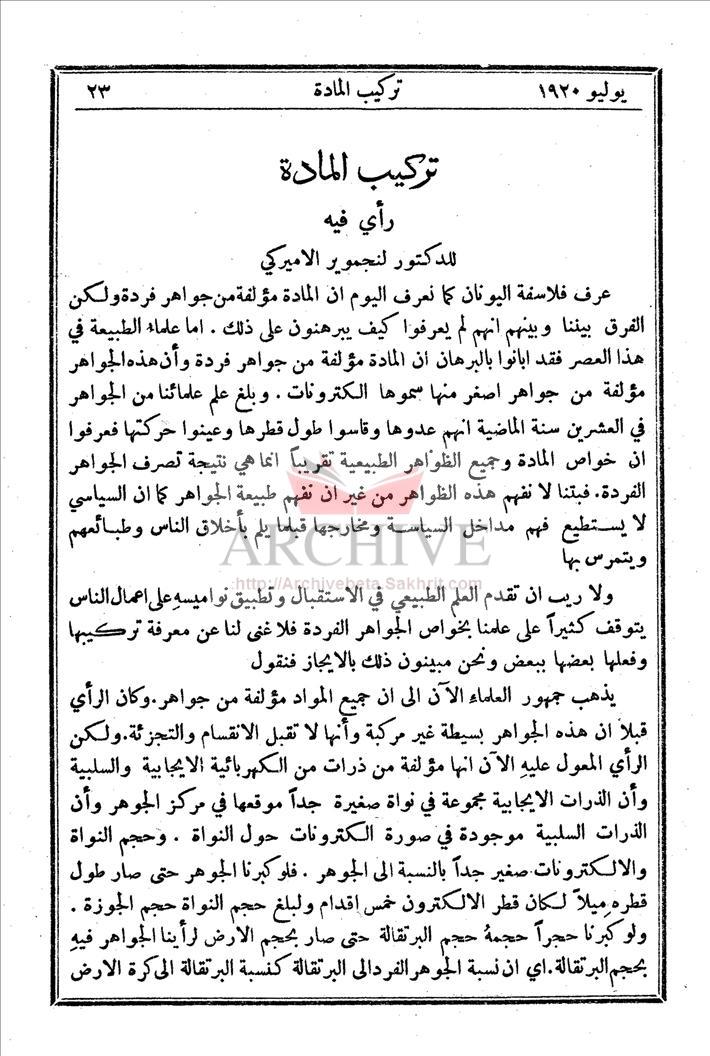 يوليو ١٩٢٠ تركيب المادة ٢٣
تركيب المادة
رأي فيه
للدكتور لنجموير الاميركي
عرف فلاسفة اليونان كما نعرف اليوم ان المادة مؤلفة من جواهر فردة ولكن
الفرق بيننا وبينهم انهم لم يعرفوا كيف يبرهنون على ذلك . اما علماء الطبيعة في
هذا العصر فقد ابانوا بالبرهان ان المادة مؤلفة من جواهر فردة وأن هذه الجواهر
مؤلفة من جواهر اصغر منها سموها الكترونات . وبلغ علم علمائنا من الجواهر
في العشرين سنة الماضية انهم عدوها وقاسوا طول قطرها وعينوا حركتها فعرفوا
ان خواص المادة وجميع الظواهر الطبيعية تقريباً انما هي نتيجة تصرف الجواهر
الفردة . فبتنا لا نفهم هذه الظواهر من غير ان نفهم طبيعة الجواهر كما ان السياسي
لا يستطيع فهم مداخل السياسة ومخارجها قبلما يلم بأخلاق الناس وطبائعهم
ويتمرس بها
ARCHIVE
http://Archivebeta.Sakhrit.com
ولا ريب ان تقدم العلم الطبيعي في الاستقبال وتطبيق نواميسهِ على اعمال الناس
يتوقف كثيراً على علمنا بخواص الجواهر الفردة فلا غنى لنا عن معرفة تركيبها
وفعلها بعضها ببعض ونحن مبينون ذلك بالايجاز فنقول
يذهب جمهور العلماء الآن الى ان جميع المواد مؤلفة من جواهر . وكان الرأي
قبلاً ان هذه الجواهر بسيطة غير مركبة وأنها لا تقبل الانقسام والتجزئة . ولكن
الرأي المعول عليهِ الآن انها مؤلفة من ذرات من الكهربائية الايجابية والسلبية
وأن الذرات الايجابية مجموعة في نواة صغيرة جداً موقعها في مركز الجوهر وأن
الذرات السلبية موجودة في صورة الكترونات حول النواة . وحجم النواة
والالكترونات صغير جداً بالنسبة الى الجوهر . فلو كبرنا الجوهر حتى صار طول
قطره ميلاً لكان قطر الالكترون خمس اقدام ولبلغ حجم النواة حجم الجوزة .
ولو كبرنا حجراً حجمهُ حجم البرتقالة حتى صار بحجم الارض لرأينا الجواهر فيهِ
بحجم البرتقالة . اي ان نسبة الجوهر الفرد الى البرتقالة كنسبة البرتقالة الى كرة الارض